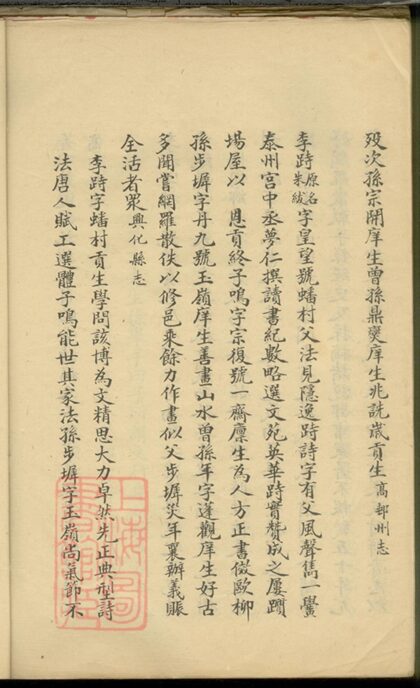 歿次孫宗開庠生曾孫鼎奭庠生兆詵歲貢生高郵州志
李跱原名朱紱字皇望號蟠村父法見隱逸跱詩字有父風聲雋一黌
泰州宮中丞夢仁撰讀書紀數略選文苑英華跱實贊成之屢躓
場屋以恩貢終子鳴字宗復號一齋廩生為人方正書倣歐柳
孫步墀字丹九號玉嶺庠生善畫山水曾孫年字逢觀庠生好古
多聞嘗網羅散佚以修邑乘餘力作畫似父步墀災年襄辦義賑
全活者眾興化縣志
李跱字蟠村貢生學問該博為文精思大力卓然先正典型詩
法唐人賦工選體子鳴能世其家法孫步墀字玉嶺尚氣節不